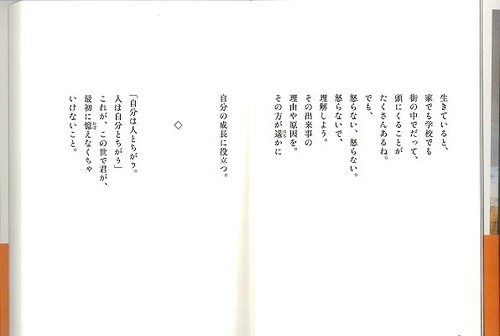 生きていると、
家でも学校でも
街の中でだって、
頭にくることが
たくさんあるね。
でも、
怒らない、怒らない。
怒らないで、
理解しよう。
その出来事の
理由や原因を。
その方が遥かに
自分の成長に役立つ。
◇
「自分は人とちがう。
人は自分とちがう」
これが、この世で君が、
最初に憶えなくちゃ
いけないこと。